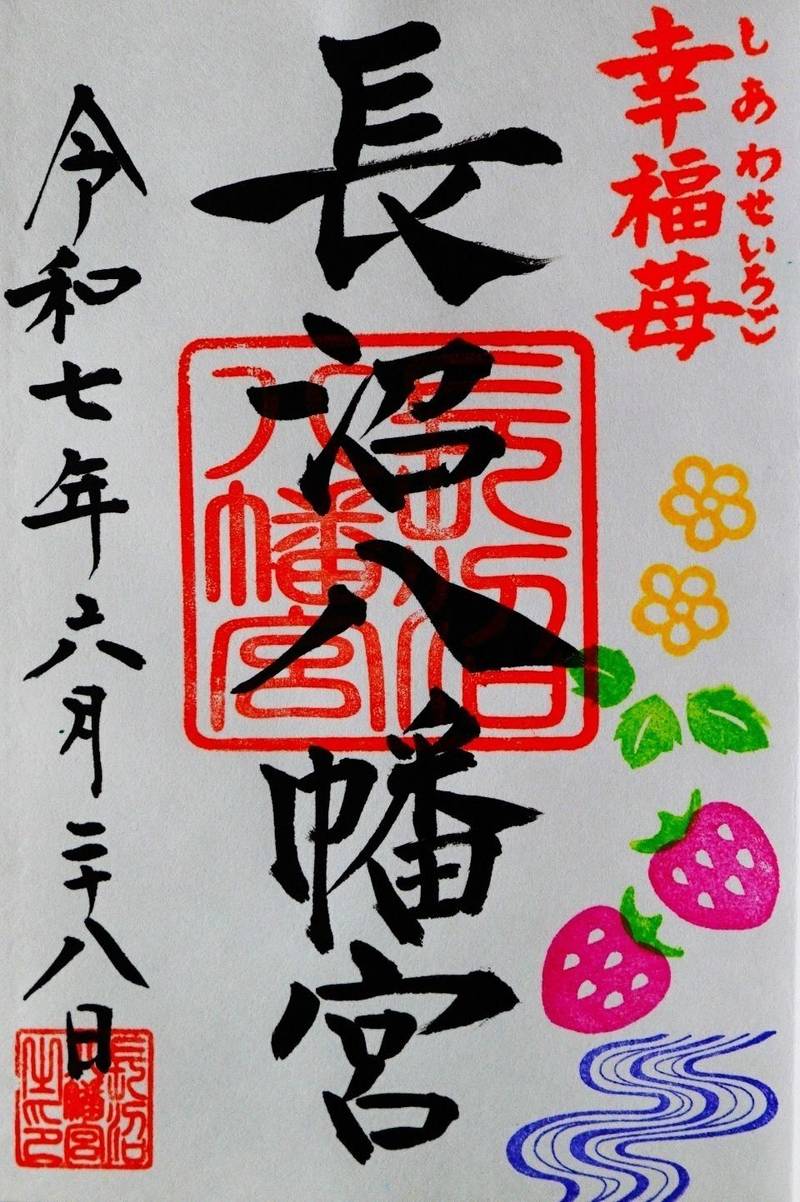 しあわせいちご
幸福苺
長沼八幡宮
長沼
八幡宮
令和七年六月二十八日
長沼
八幡宮
之印